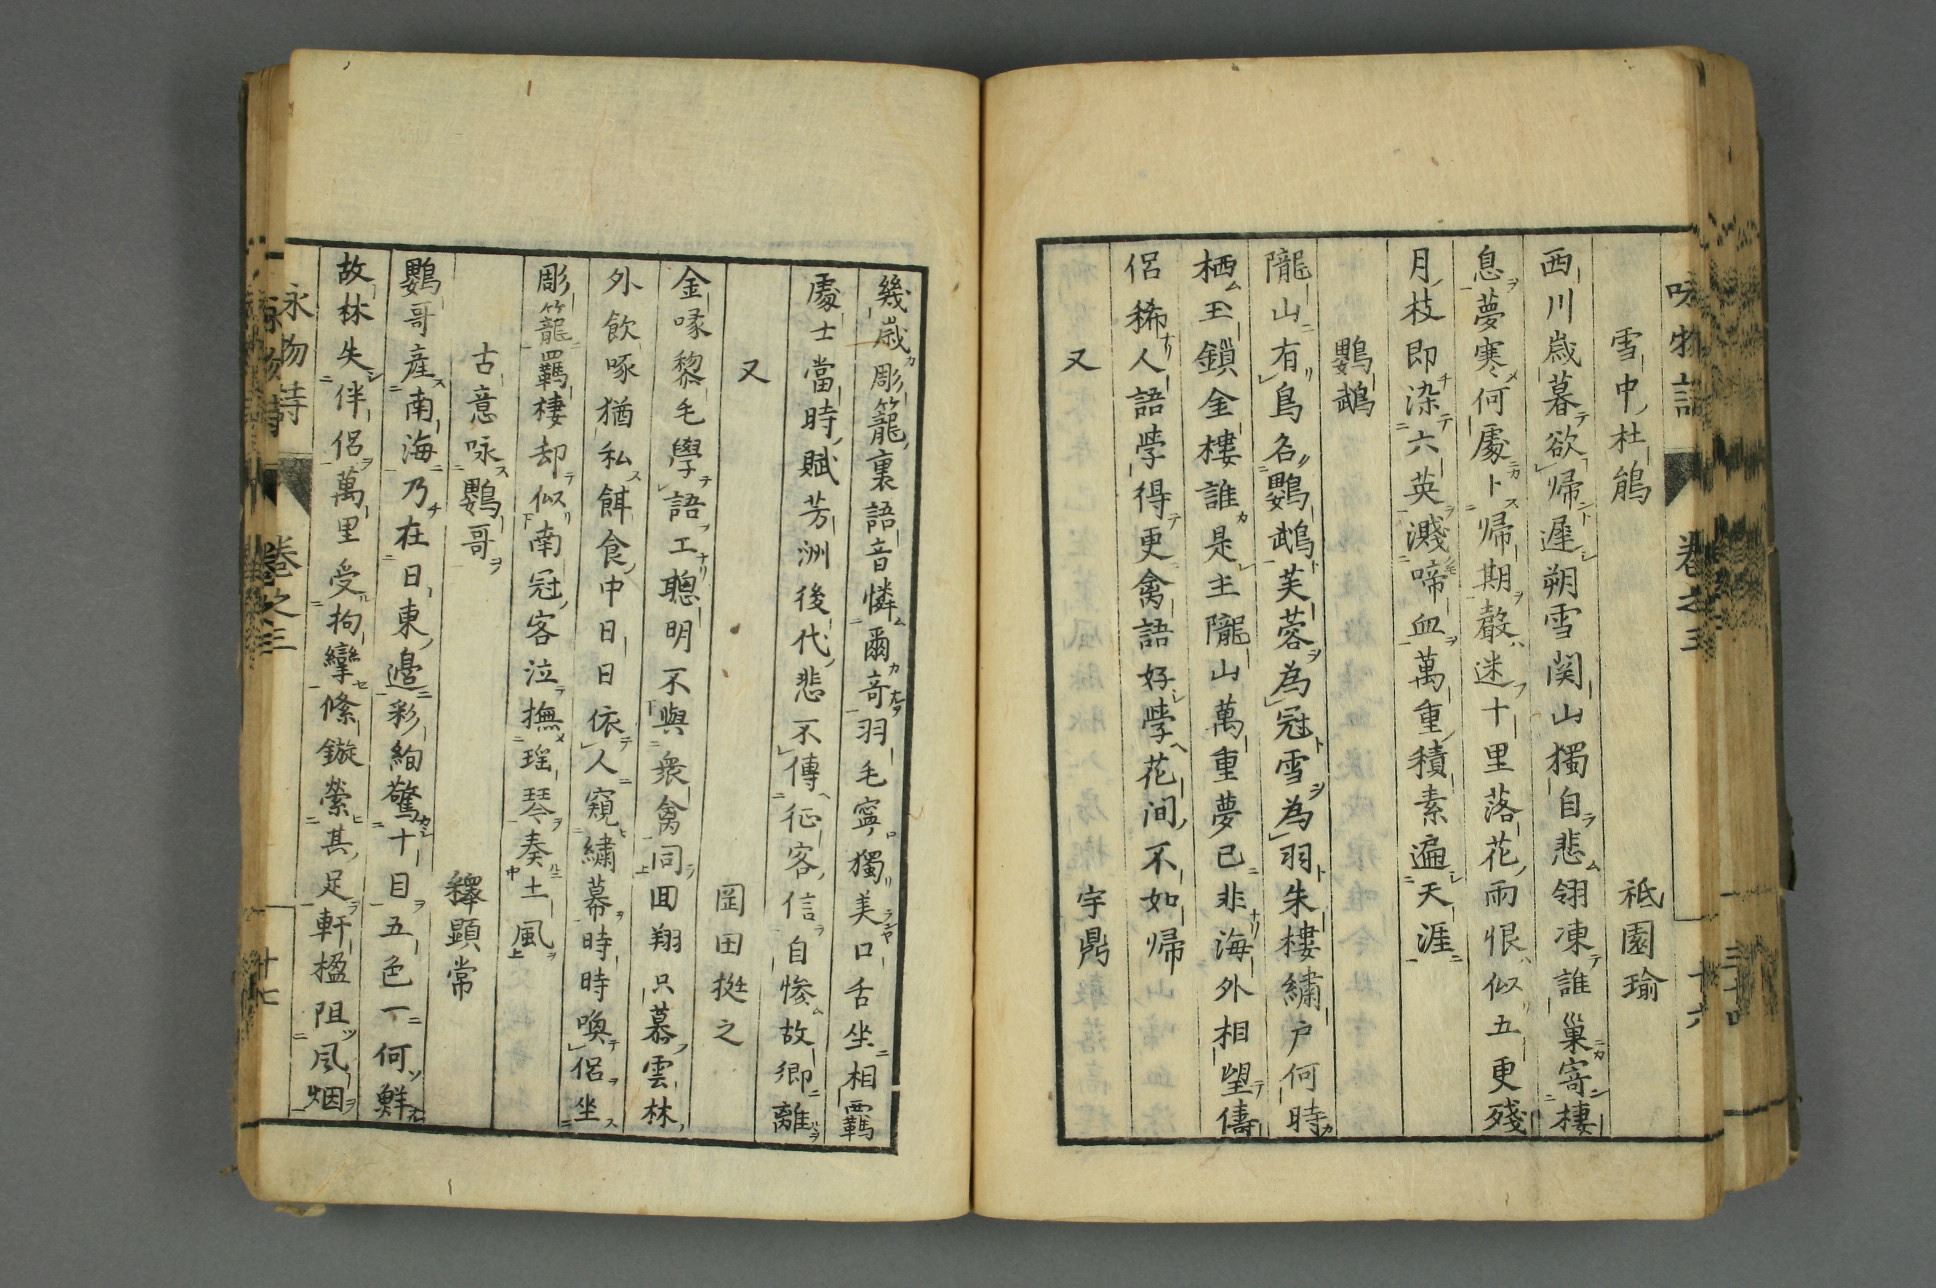 詠物詩 卷之三 十六
雪中杜鵑 祗園瑜
西川歳暮欲歸遲朔雪関山獨自悲翎凍誰巢寄棲
息夢寒何處卜歸期聲迷十里落花雨恨似五更殘
月枝即染六英濺啼血萬重積素遍天涯
鸚鵡
隴山有鳥名鸚鵡芙蓉為冠雪為羽朱樓繡戶何時
栖玉鎖金樓誰是主隴山萬重夢已非海外相望儔
侶稀人語學得更禽語好學花間不如歸
又 宇鼎
幾歳彫籠裏語音憐爾奇羽毛寧獨美口舌坐相羈
處士當時賦芳洲後代悲不傳征客信自惨故鄉離
又 岡田挺之
金喙黎毛學語工聰明不與衆禽同囬翔只慕雲林
外飲啄猶私餌食中日日依人窺繡幕時時喚侶坐
彫籠羈棲却似南冠客泣撫瑶琴奏土風
古意咏鸚哥 釋顕常
鸚哥產南海乃在日東邊彩絢驚十目五色一何鮮
故林失伴侶萬里受拘攣絛鏇縈其足軒楹阻风烟
詠物詩 卷之三 十七